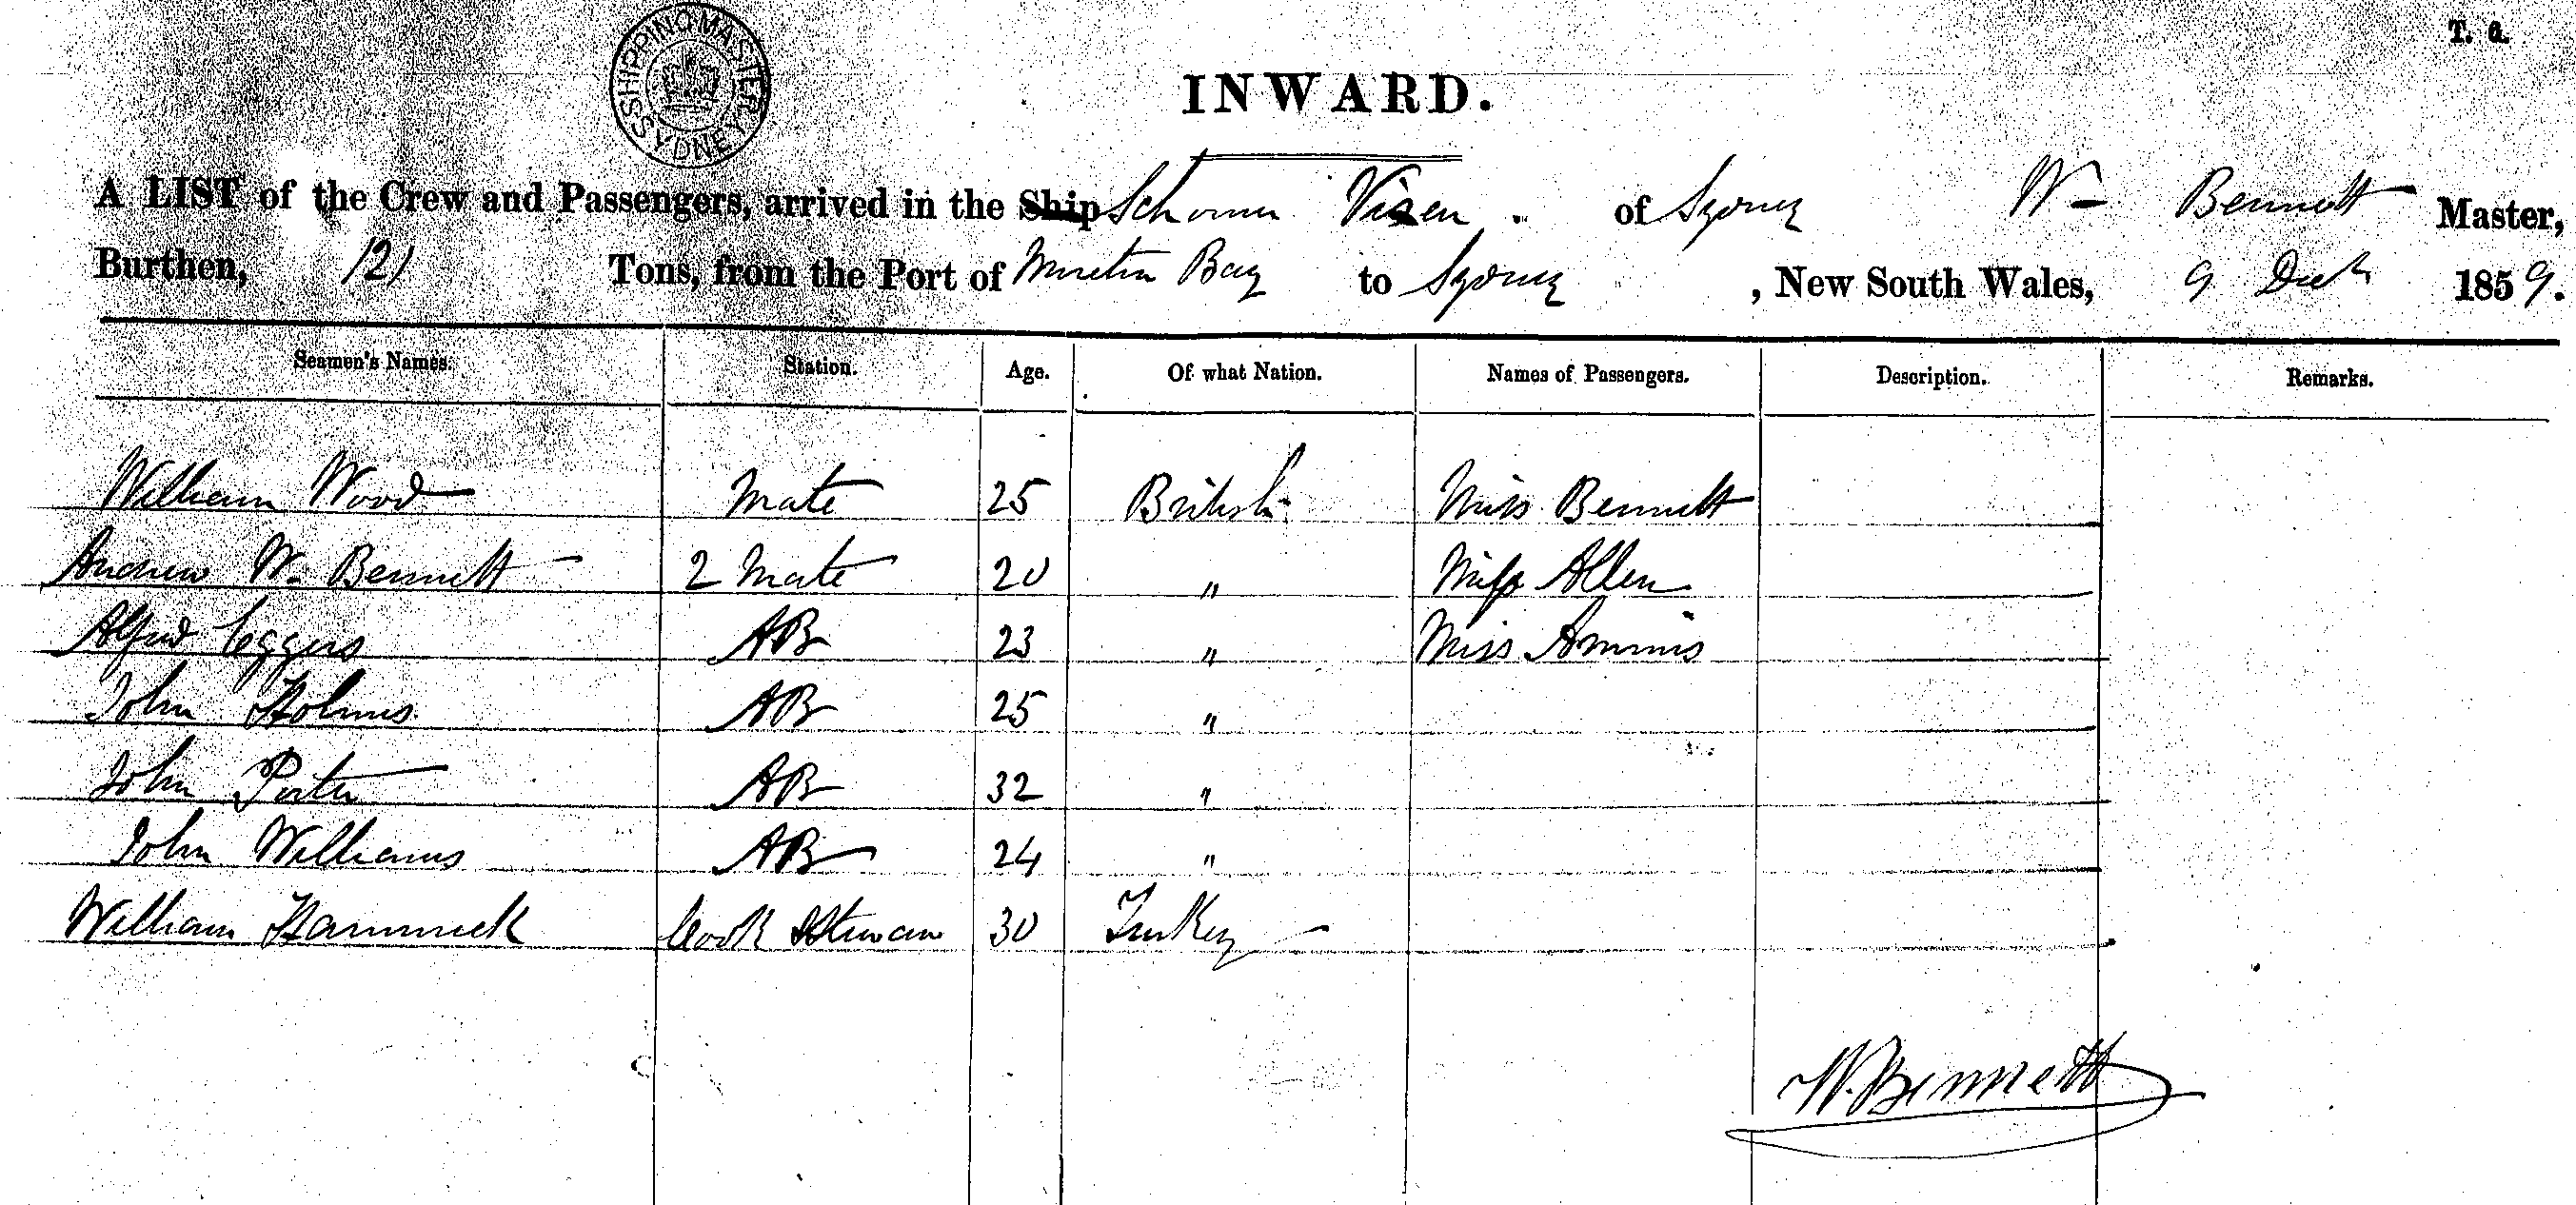 T. a.
SHIPPING MASTER SYDNEY
INWARD.
A LIST of the Crew and Passengers, arrived in the Ship Schooner Vixen . of Sydney Wm Bennett Master,
Burthen, 121 Tons, from the Port of Moreton Bay to Sydney , New South Wales, 9 Decr 1859.
Seamen's Names. Station. Age. Of what Nation. Names of Passengers. Description. Remarks.
William Wood Mate 25 British Miss Bennett
Andrew W. Bennett 2 Mate 20 " Miss Allen
Alfred Eggers AB 23 " Miss
John Holmes AB 25 "
John Porter AB 32 "
John Williams AB 24 "
William Hammick Cook Steward 30 Turkey
W. Bennett